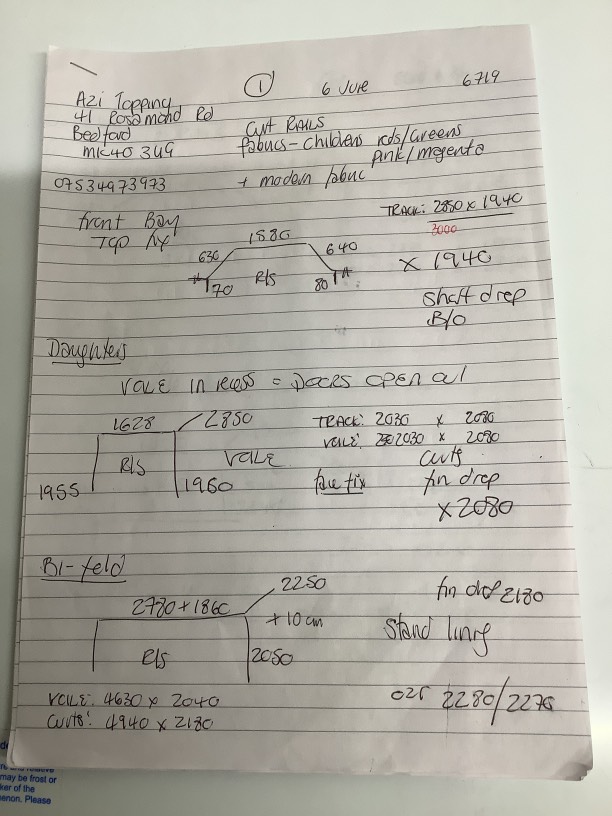 ① 6 June 6719
Azi Topping
41 Rosamond Rd
Bedford
MK40 3UG
07534973973
Curt RAILS
fabrics - childrens reds/Greens
pink/magenta
+ modern fabric
front Bay
Top fix
TRACK: 2850 x 1940
3000
1580
630
640
70
R/S
80
x 1940
Shaft drop
B/O
Daughters
VOILE in recess = Doors open out
1628
2850
R/S
VOILE
1955
1960
TRACK: 2030 x 2080
VOILE: 2030 x 2080
Curts
face fix
fin drop
x 2080
Bi-fold
2780 + 1860
2250
+ 10 cm
R/S
2050
fin drop 2180
Stand lining
VOILE: 4630 x 2040
Curts: 4940 x 2180
2280/2270
may be frost or
ker of the
enon. Please